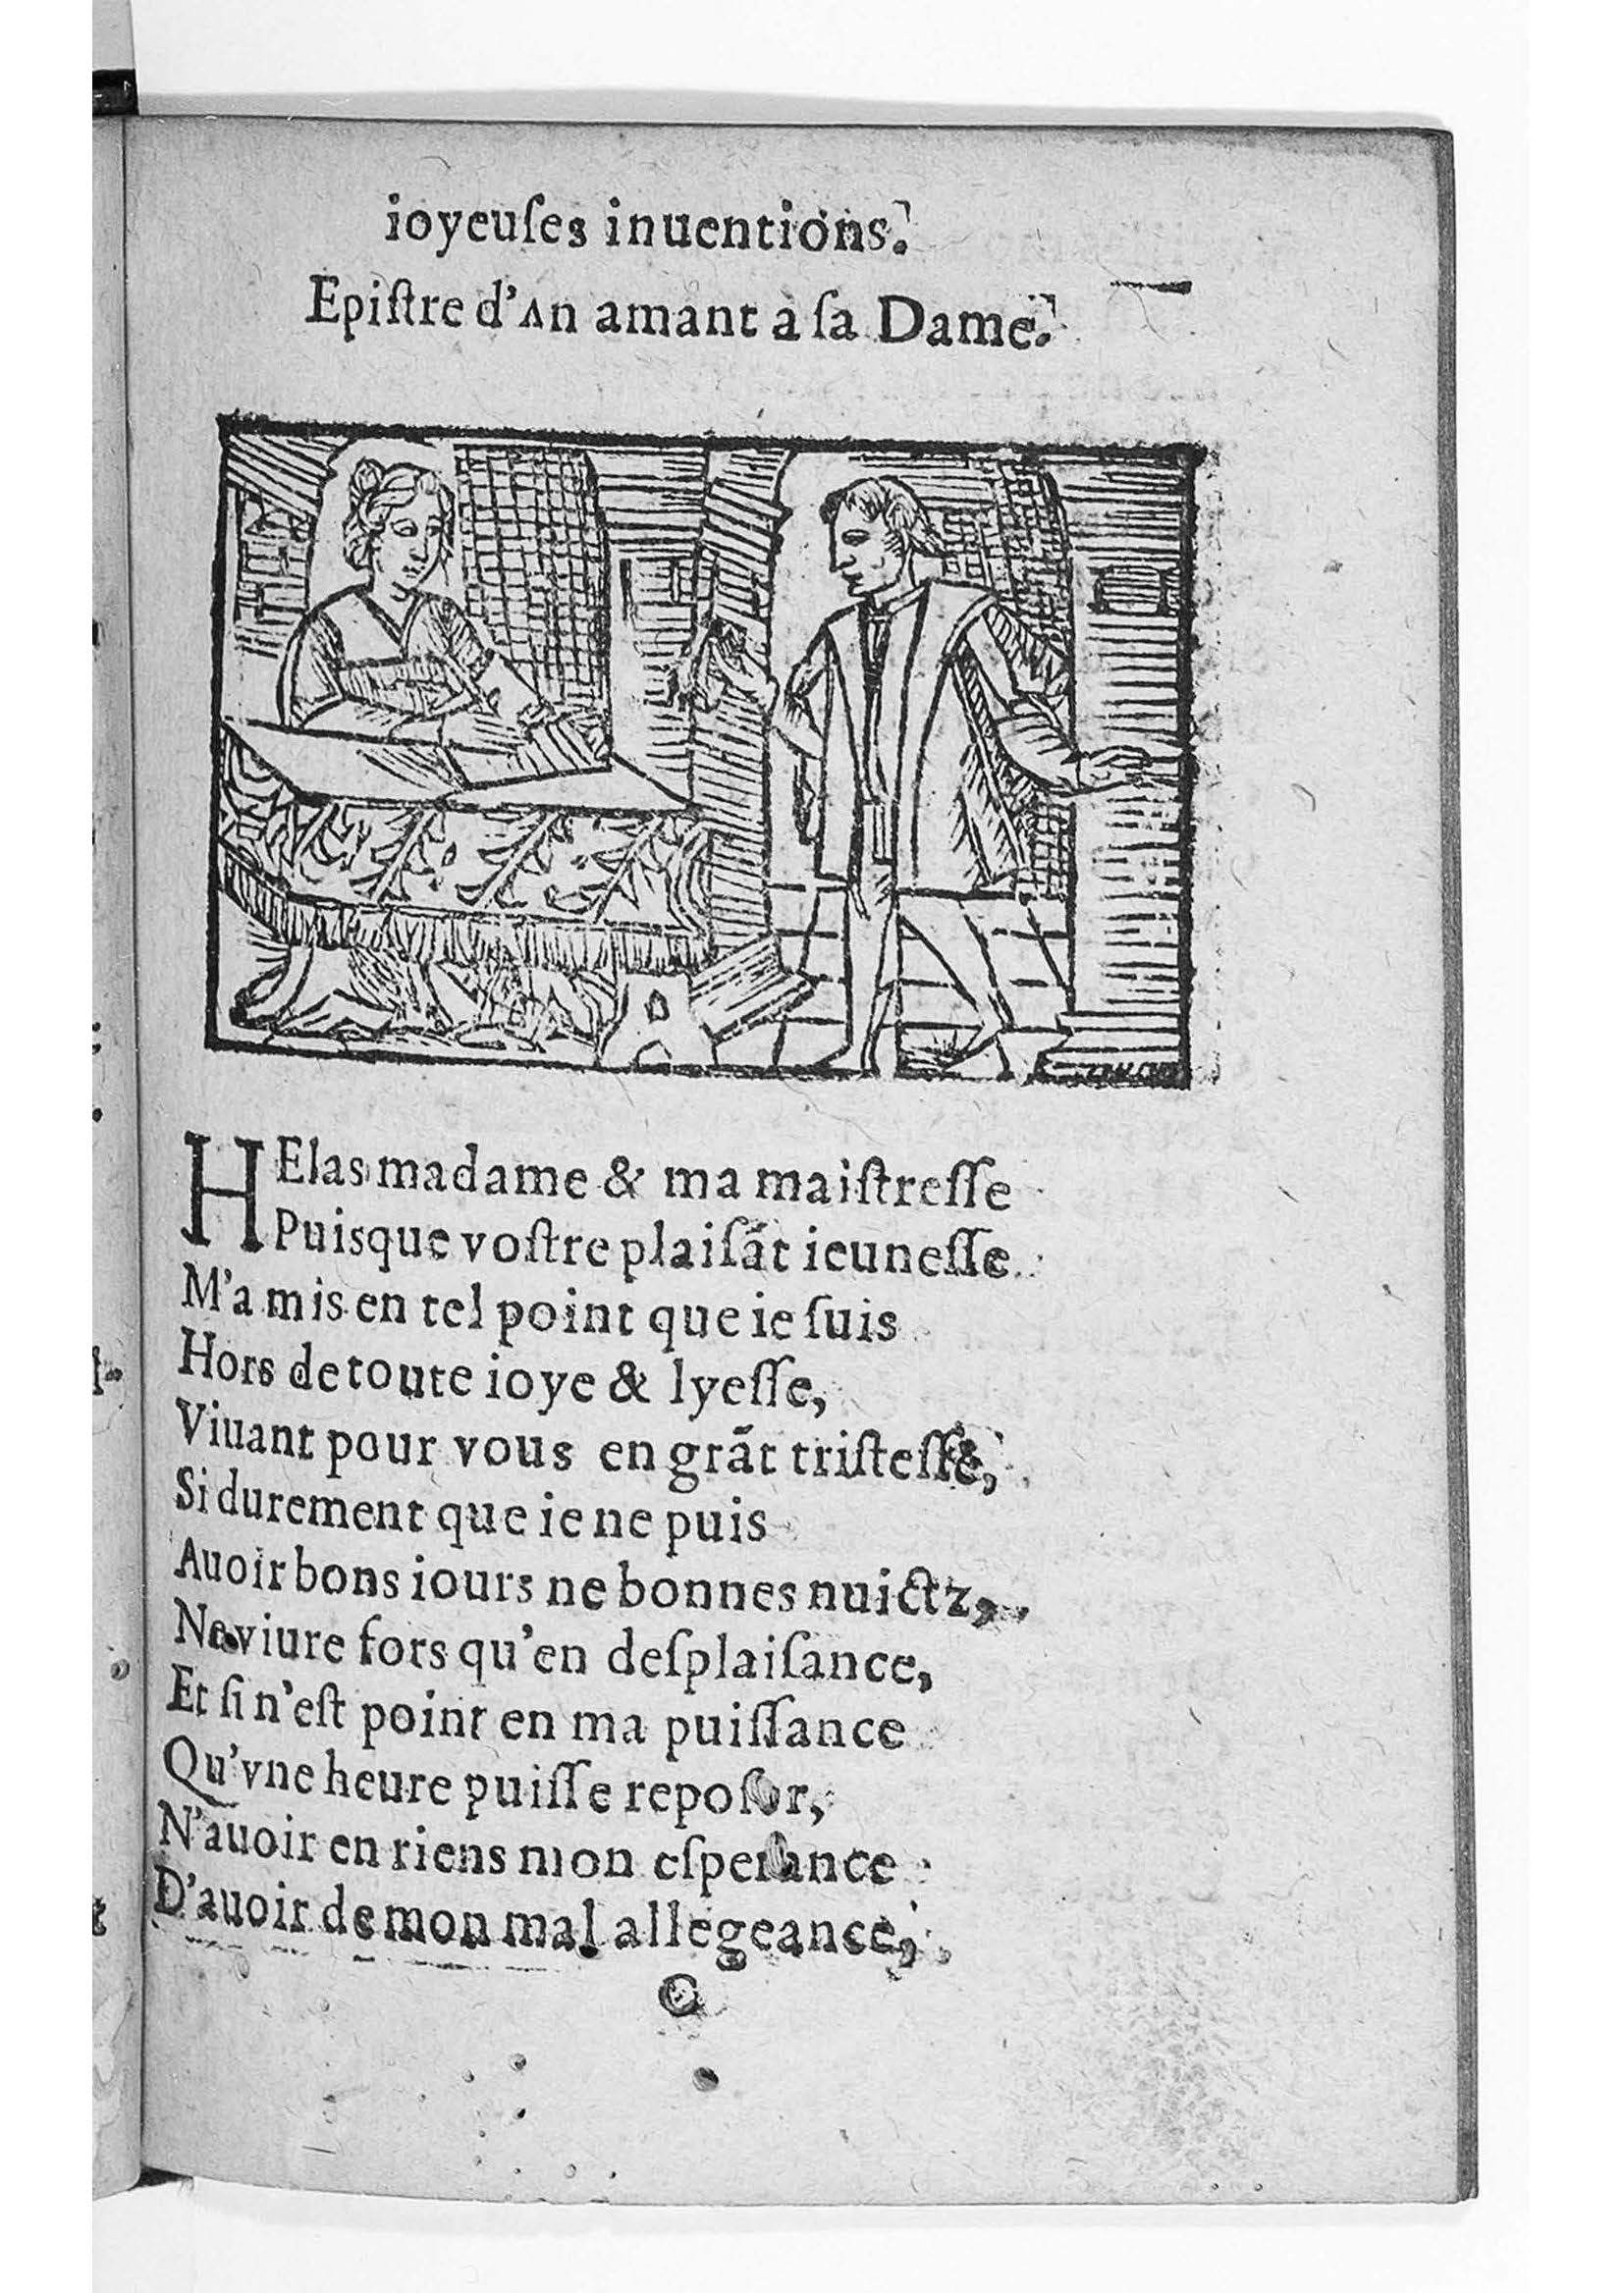 ioyeuſes inuentions.
Epiſtre d'vn amant à ſa Dame.
HElas madame & ma maiſtreſſe
Puisque voſtre plaiſãt ieuneſſe
M'a mis en tel point que ie ſuis
Hors de toute ioye & lyeſſe,
Viuant pour vous en grãt triſteſſe,
Si durement que ie ne puis
Auoir bons iours ne bonnes nuictz,
Ne viure fors qu'en deſplaiſance,
Et ſi n'eſt point en ma puiſſance
Qu'vne heure puiſſe repoſer,
N'auoir en riens mon eſperance
D'auoir de mon mal allegeance,
C